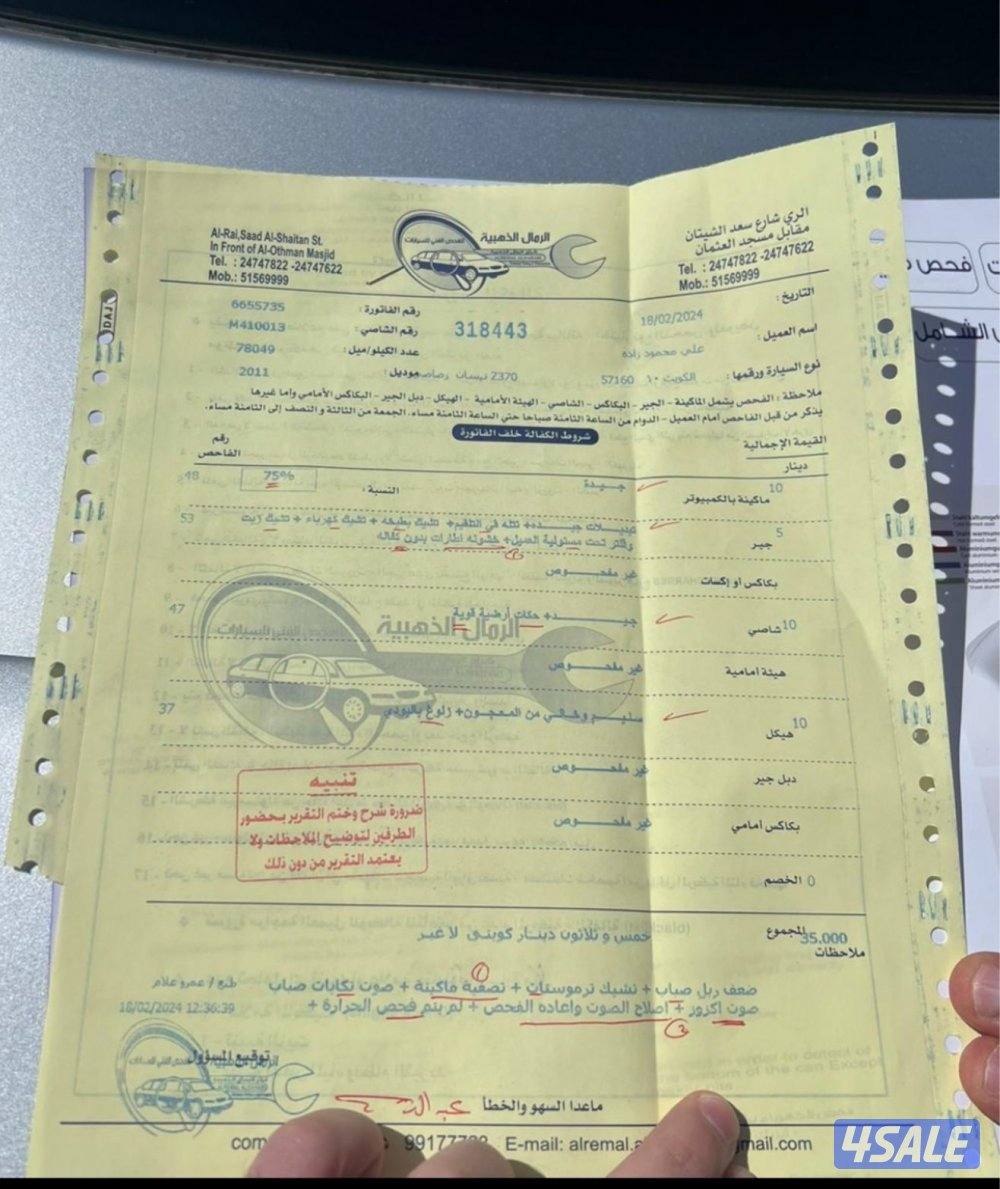 Al-Rai,Saad Al-Shaitan St.
In Front of Al-Othman Masjid
Tel. : 24747822 -24747622
Mob.: 51569999
الرمال الذهبية
للفحص الفني للسيارات
الري شارع سعد الشيتان
مقابل مسجد العثمان
Tel. : 24747822 -24747622
Mob.: 51569999
التاريخ : 18/02/2024
رقم الفاتورة : 6655735
318443
اسم العميل : علي محمود زاده
رقم الشاصي : M410013
نوع السيارة ورقمها : الكويت ١٠ 57160
2370 نيسان
عدد الكيلو/ميل : 78049
موديل : 2011
ملاحظة : الفحص يشمل الماكينة - الجير - البكاكس - الشاصي - الهيئة الأمامية - الهيكل - دبل الجير - البكاكس الأمامي وأما غيرها
يذكر من قبل الفاحص أمام العميل - الدوام من الساعة الثامنة صباحا حتى الساعة الثامنة مساء، الجمعة من الثالثة و النصف إلى الثامنة مساء.
شروط الكفالة خلف الفاتورة
القيمة الإجمالية
دينار
رقم الفاحص
10 ماكينة بالكمبيوتر جيدة النسبة : 75% 48
5 جير تبديلات جيده+ نتله في التقيم+ تشيك بطيخه + تشيك كهرباء + تشيك زيت 53
وفلتر تحت مسئولية العميل+ خشونه اطارات بدون كفاله
بكاكس أو إكسات غير مفحوص
10 شاصي جيد+ حكات أرضية قوية 47
هيئة أمامية غير مفحوص
10 هيكل سليم وخالي من المعجون+ زلوغ بالبودي 37
دبل جير غير مفحوص
بكاكس أمامي غير مفحوص
0 الخصم
تنبيه
ضرورة شرح وختم التقرير بحضور
الطرفين لتوضيح الملاحظات ولا
يعتمد التقرير من دون ذلك
المجموع 35.000 خمس و ثلاثون دينار كويتى لا غير
ملاحظات
ضعف ربل صباب + تشيك ترموستات + تصفية ماكينة + صوت تكايات صباب
صوت اكزوز + اصلاح الصوت واعاده الفحص + لم يتم فحص الحرارة +
طبع / عمرو علام
18/02/2024 12:36:39
توقيع المسؤول
ماعدا السهو والخطأ
E-mail: alremal.a
mail.com
4SALE